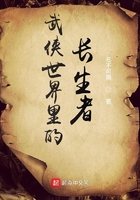 武侠世界里的
长生者
起点中文网